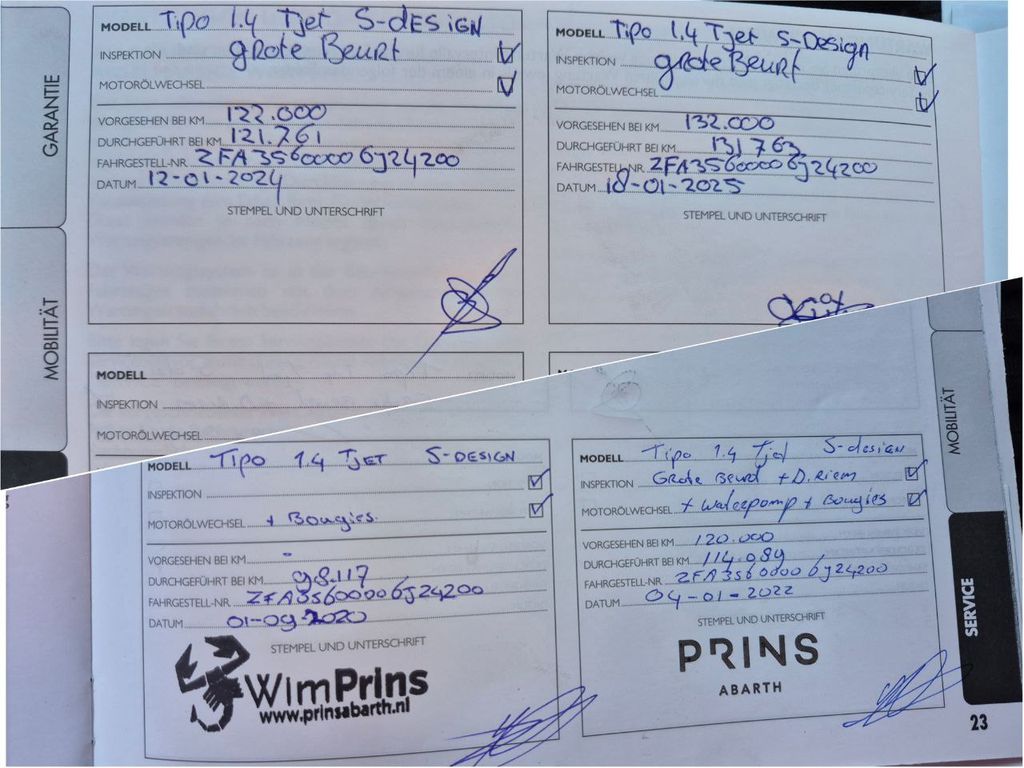 GARANTIE
MOBILITÄT
MODELL Tipo 1.4 Tjet S-design
INSPEKTION grote Beurt
MOTORÖLWECHSEL
VORGESEHEN BEI KM 122.000
DURCHGEFÜHRT BEI KM 121.761
FAHRGESTELL-NR. ZFA3560000 6J24200
DATUM 12-01-2024
STEMPEL UND UNTERSCHRIFT
MODELL Tipo 1.4 Tjet S-Design
INSPEKTION grote Beurt
MOTORÖLWECHSEL
VORGESEHEN BEI KM 132.000
DURCHGEFÜHRT BEI KM 131763
FAHRGESTELL-NR. ZFA3560000 6J24200
DATUM 18-01-2025
STEMPEL UND UNTERSCHRIFT
MODELL
INSPEKTION
MOTORÖLWECHSEL
MODELL Tipo 1.4 TJET S-DESIGN
INSPEKTION
MOTORÖLWECHSEL + Bougies.
VORGESEHEN BEI KM -
DURCHGEFÜHRT BEI KM 98.117
FAHRGESTELL-NR. ZFA3560000 6J24200
DATUM 01-09-2020
STEMPEL UND UNTERSCHRIFT
WimPrins
www.prinsabarth.nl
MODELL Tipo 1.4 Tjet S-design
INSPEKTION Grote Beurt + D.Riem
MOTORÖLWECHSEL + Waterpomp + Bougies
VORGESEHEN BEI KM 120.000
DURCHGEFÜHRT BEI KM 114.089
FAHRGESTELL-NR. ZFA3560000 6J24200
DATUM 04-01-2022
STEMPEL UND UNTERSCHRIFT
PRINS
ABARTH
MOBILITÄT
SERVICE
23